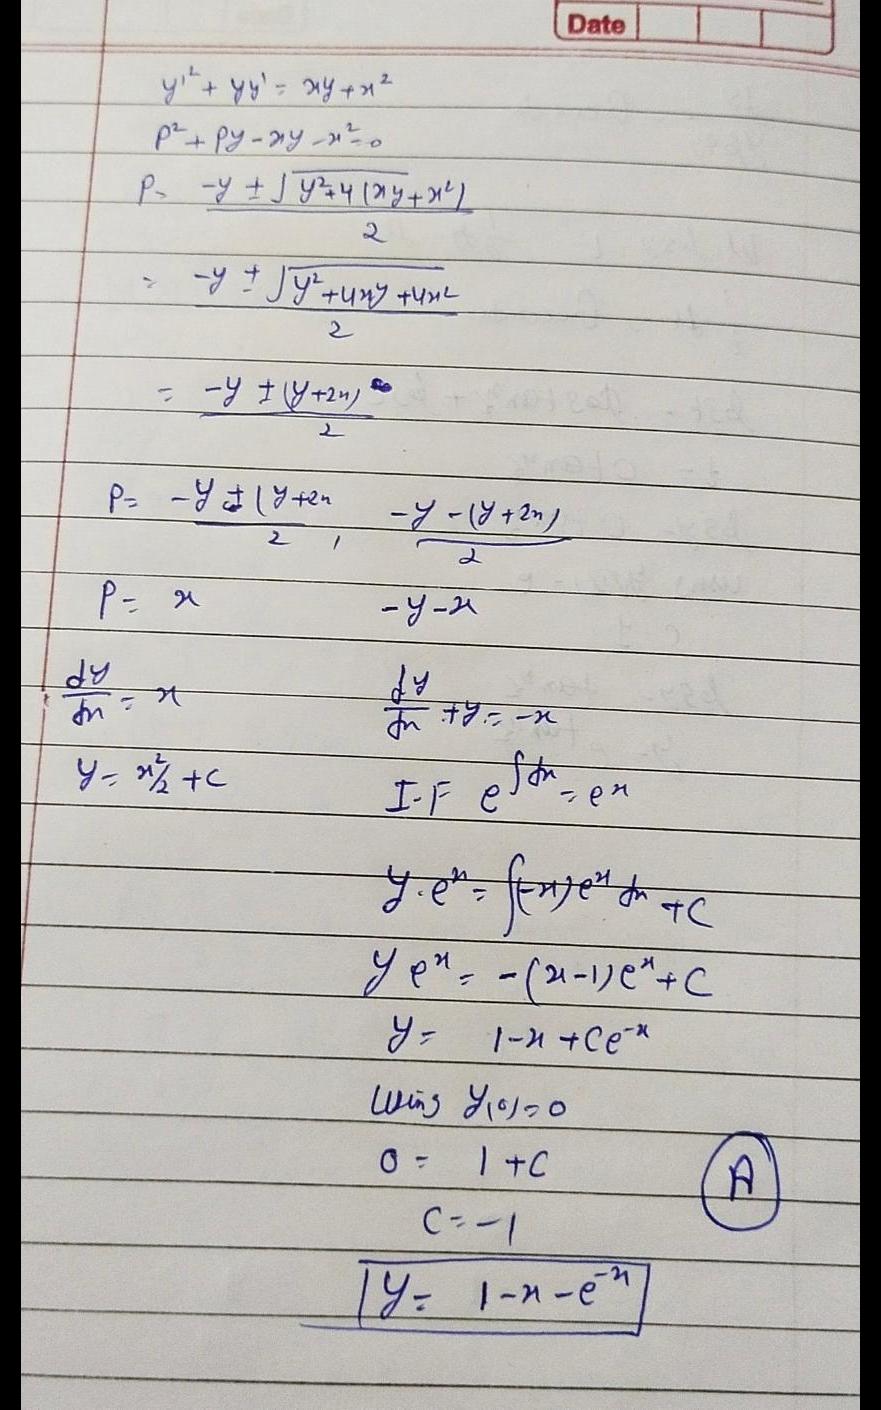 Date
y'² + yy' = xy + x²
P² + Py - xy - x² = 0
P = (-y ± √(y² + 4(xy + x²)))/2
= (-y ± √(y² + 4xy + 4x²))/2
= (-y ± (y + 2x))/2
P = (-y + (y + 2x)/2 , (-y - (y + 2x))/2
P = x -y - x
dy/dx = x dy/dx + y = -x
y = x²/2 + C I.F e^∫dx = e^x
y·e^x = ∫(-x)e^x dx + C
y e^x = -(x-1)e^x + C
y = 1 - x + Ce^-x
Using y(0) = 0
0 = 1 + C
A
C = -1
y = 1 - x - e^-x